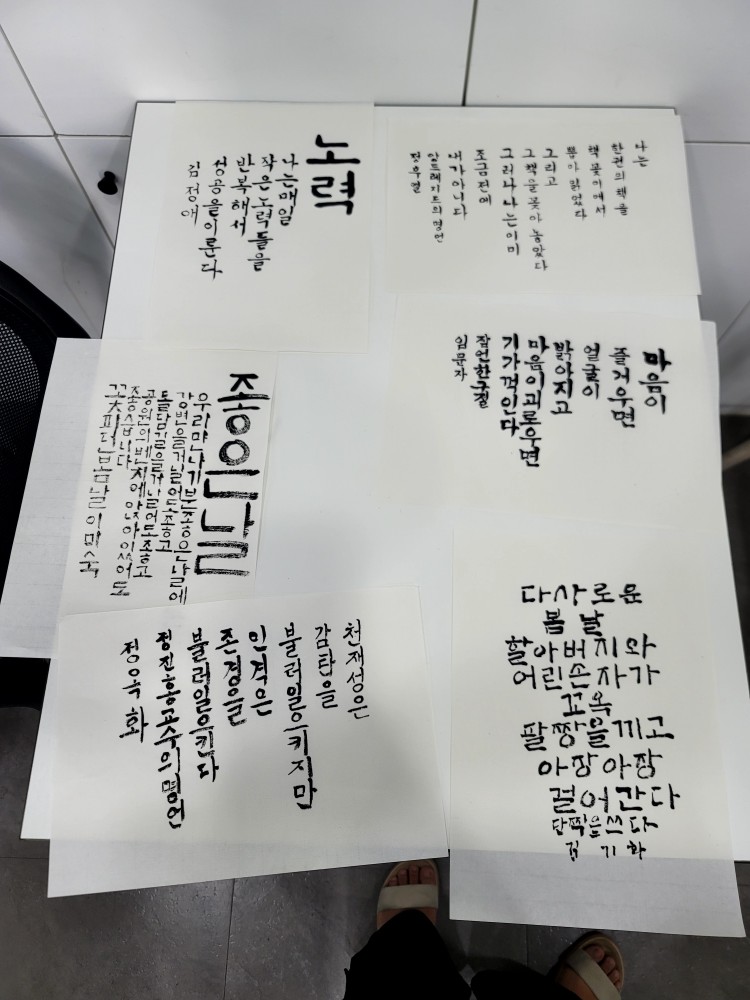 노력
나는매일
작은노력들을
반복해서
성공을이룬다
김정애
나는
한권의책을
책꽂이에서
뽑아읽었다
그리고
그책을꽂아놓았다
그러나나는이미
조금전에
내가아니다
앙드레지드의명언
정우열
마음이
즐거우면
얼굴이
밝아지고
마음이괴로우면
기가꺽인다
잠언한구절
임문자
좋은날
우리만나기분좋은날에
강변을거닐어도좋고
돌담길을거닐어도좋고
공원의벤치에앉아있어도
좋습니다
꽃피던봄날이미숙
천재성은
감탄을
불러일으키지만
인격은
존경을
불러일으킨다
정진홍교수의명언
정옥화
다사로운
봄날
할아버지와
어린손자가
꼬옥
팔짱을끼고
아장아장
걸어간다
단짝은쓰다
김기화